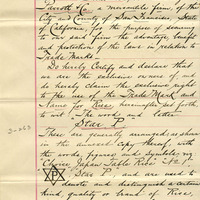 Parrott & Co. a mercantile firm, of the
City and County of San Francisco, State
of California, for the purpose of securing
to our said firm the advantage benefit
and protection of the laws in relation to
Trade Marks.
Do hereby Certify and declare that
we are the exclusive owners of, and
do hereby claim the exclusive right
to the use of the Trade Mark and
Name for Rice, hereinafter set forth
to wit: The word and letter
Star P.
These are generally arranged as shown
in the annexed copy thereof, with
the words, figures and
Choice Japan Table Rice "No 1."
P Star P., and are used to
denote and distinguish a certain
kind, quality or brand of Rice,